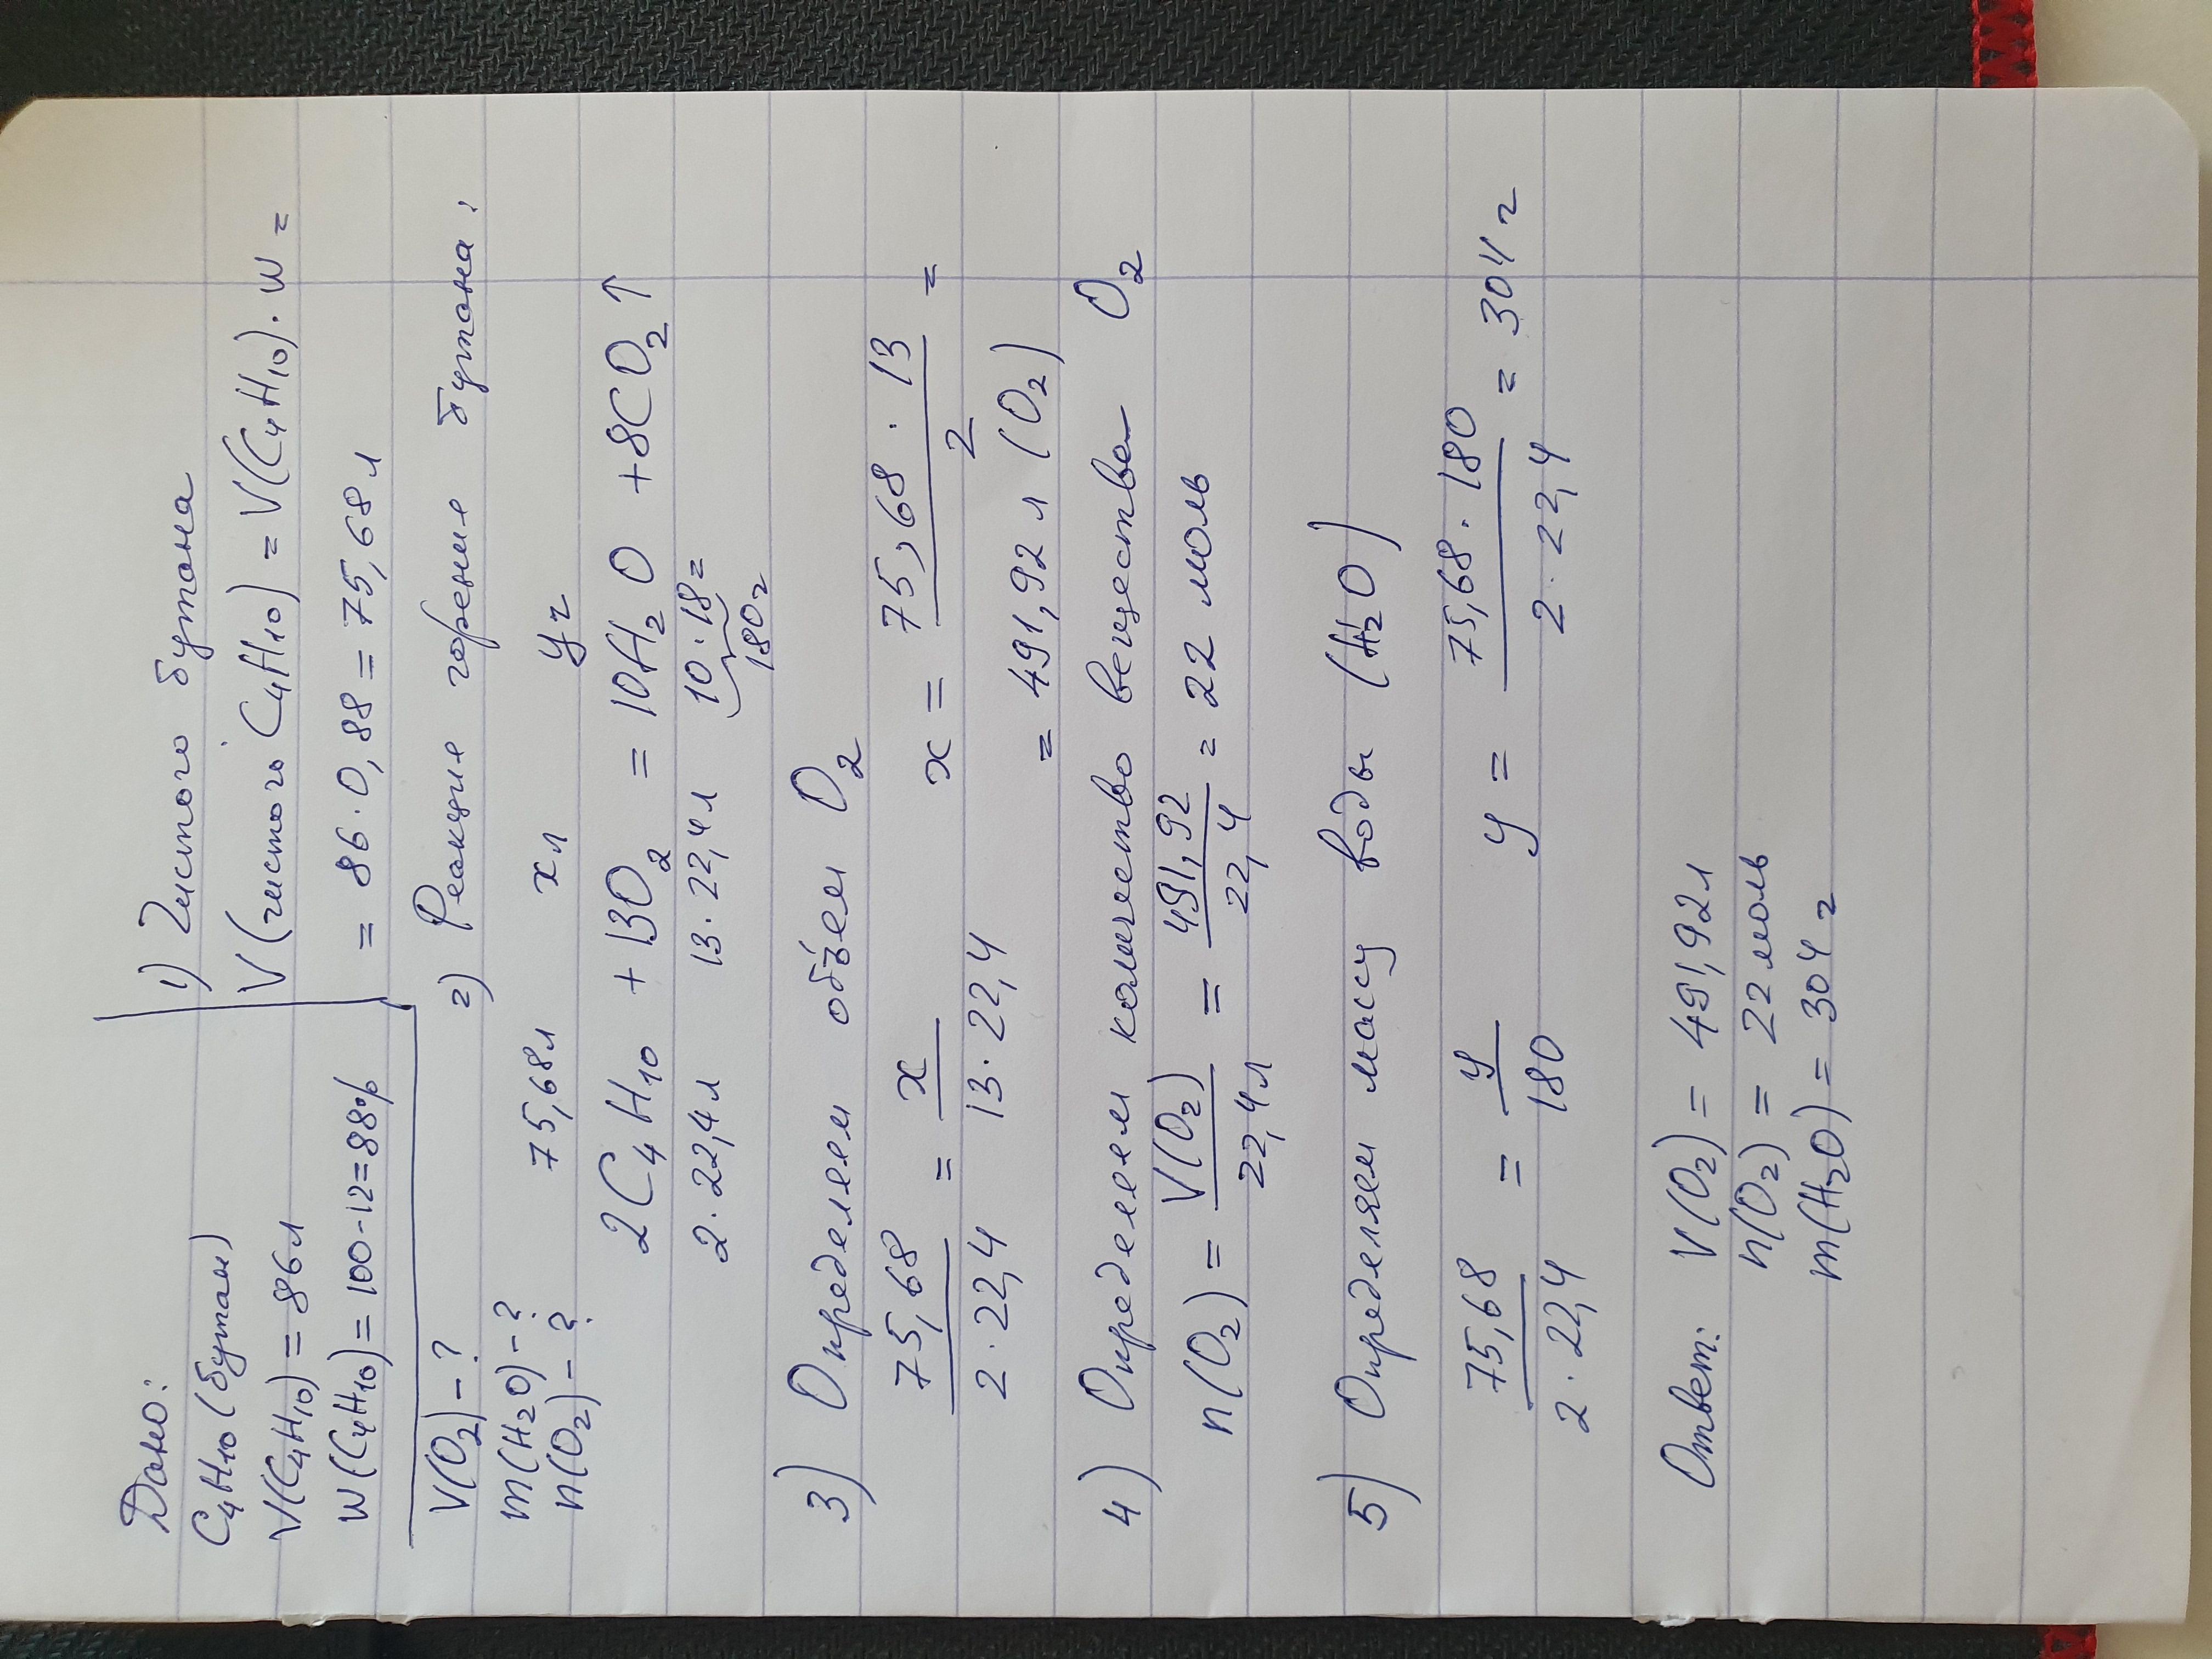 Дано:
C₄H₁₀ (бутан)
V(C₄H₁₀) = 86 л
W(C₄H₁₀) = 100-12=88%
V(O₂) - ?
m(H₂O) - ?
n(O₂) - ?
1) Чистого бутана
V(чистого C₄H₁₀) = V(C₄H₁₀) · W =
= 86 · 0,88 = 75,68 л
2) Реакция горения бутана:
75,68 л x л y г
2C₄H₁₀ + 13O₂ = 10H₂O + 8CO₂ ↑
2 · 22,4 л 13 · 22,4 л 10 · 18 =
180 г
3) Определяем объём O₂
75,68 / 2 · 22,4 = x / 13 · 22,4 x = 75,68 · 13 / 2 =
= 491,92 л (O₂)
4) Определяем количество вещества O₂
n(O₂) = V(O₂) / 22,4 л = 491,92 / 22,4 = 22 моль
5) Определяем массу воды (H₂O)
75,68 / 2 · 22,4 = y / 180 y = 75,68 · 180 / 2 · 22,4 = 304 г
Ответ: V(O₂) = 491,92 л
n(O₂) = 22 моль
m(H₂O) = 304 г